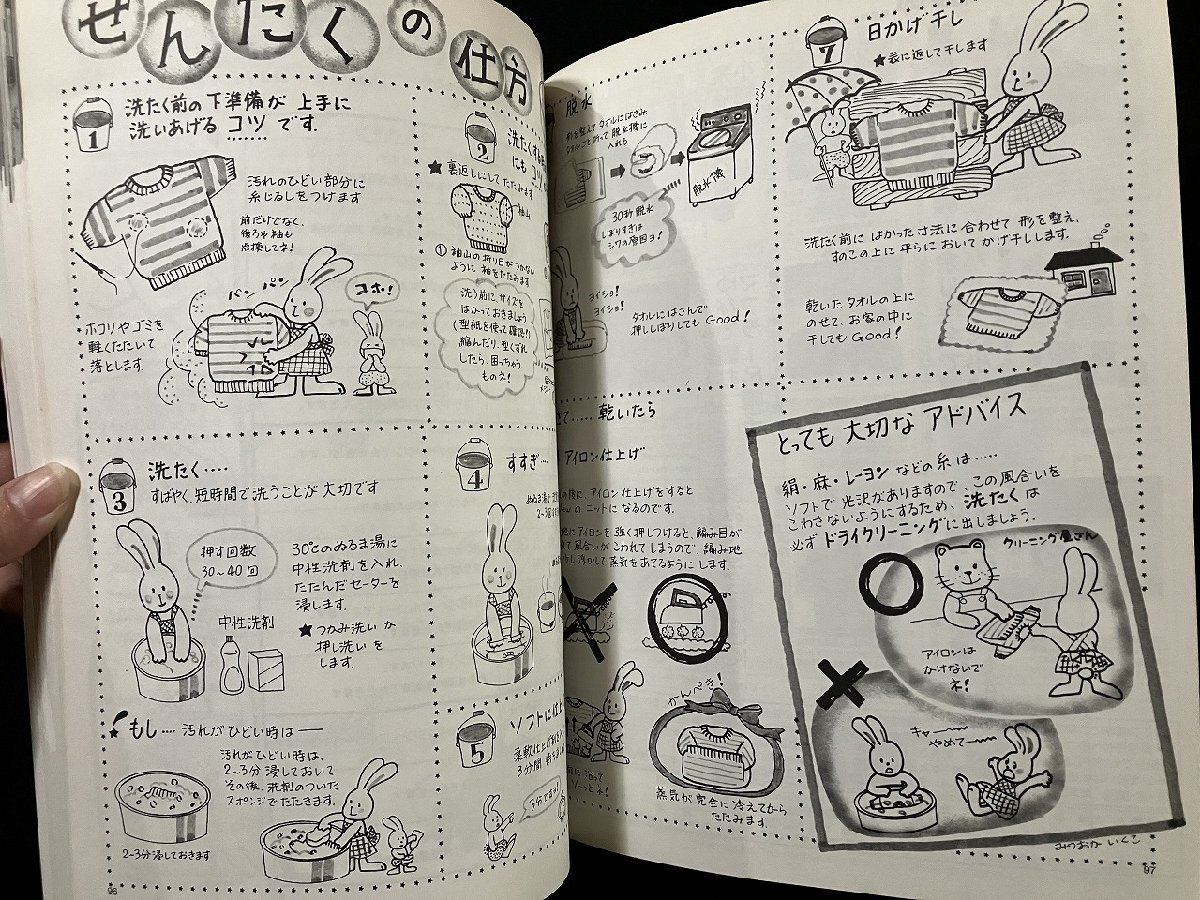 せんたくの仕方
1
洗たく前の下準備が上手に
洗いあげるコツです.
汚れのひどい部分に
糸じるしをつけます
前だけでなく、
後ろや袖も
点検してネ!
パンパン
コホ!
ホコリやゴミを
軽くたたいて
落とします.
2
洗たくする
にもコツ
★裏返しにしてたたみます
袖山
①袖山の折り目がつかない
ように、袖をたたみます
洗う前に、サイズを
はかっておきましょう
(型紙を使って確認!)
縮んだり、型くずれ
したら、困っちゃう
ものネ!
3
洗たく....
すばやく、短時間で洗うことが大切です
押す回数
30〜40回
30℃のぬるま湯に
中性洗剤を入れ、
たたんだセーターを
浸します.
中性洗剤
★つかみ洗いか
押し洗いを
します.
もし....汚れがひどい時は──
汚れがひどい時は、
2-3分浸しておいて
その後、洗剤のついた
スポンジでたたきます.
2-3分浸しておきます
4
すすぎ....
2-3
5
ソフトに仕上
柔軟仕上
3分間
96
脱水
形を整えタオルにはさみ
タオルごと折って脱水機に
入れる
脱水機
30秒脱水
しぼりすぎは
シワの原因ヨ!
ヨイショ!
ヨイショ!
タオルにはさんで
押しぼりしてもGood!
7
日かげ干し
★表に返して干します
洗たく前にはかった寸法に合わせて形を整え、
すのこの上に平らにおいてかげ干しします.
乾いたタオルの上に
のせて、お家の中に
干してもGood!
て.....乾いたら
アイロン仕上げ
の後に、アイロン仕上げをすると
newのニットになるのです.
地にアイロンを強く押しつけると、編み目が
て風合いがこわれてしまうので、編み地
浮かして蒸気をあてるようにします.
かんぺき!
蒸気が完全に冷えてから
たたみます.
とっても大切なアドバイス
絹・麻・レーヨンなどの糸は.....
ソフトで光沢がありますので、この風合いを
こわさないようにするため、洗たくは
必ずドライクリーニングに出しましょう.
クリーニング屋さん
アイロンは
かけないで
ネ!
キャー〜
やめて〜
みつおかいくこ
97